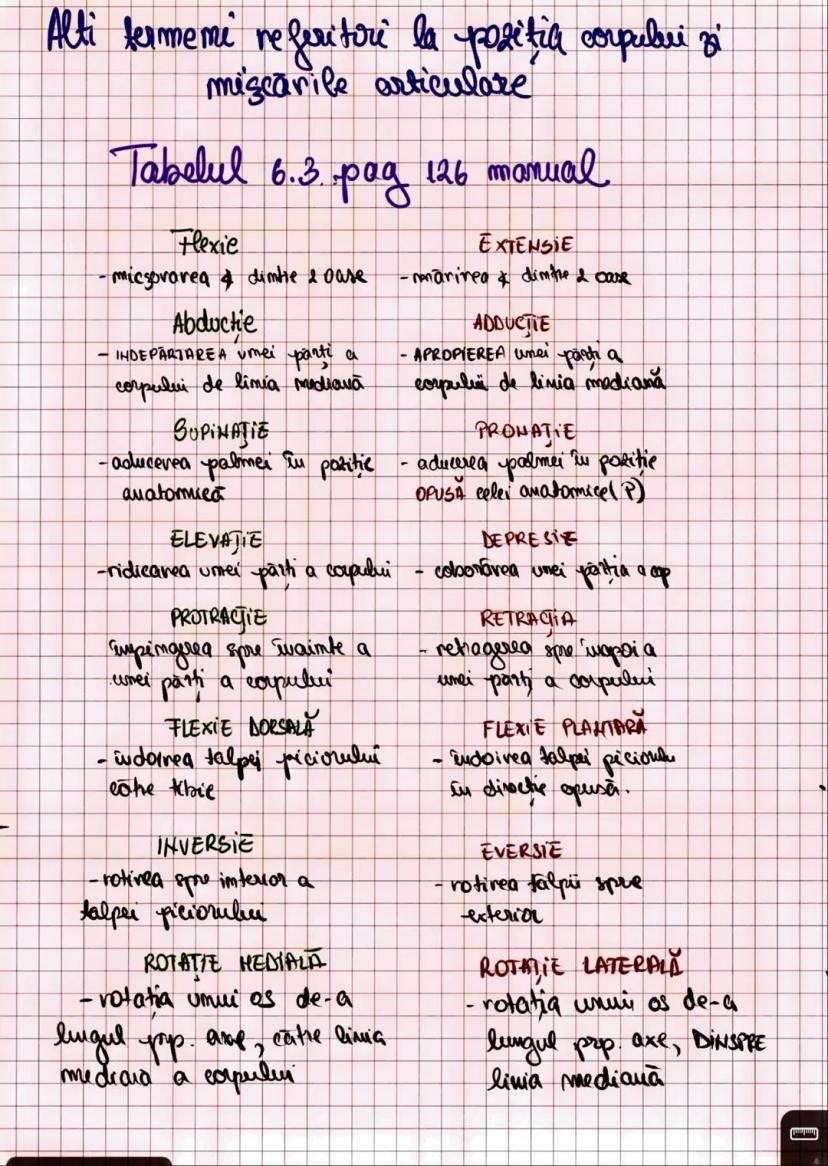 Alti termemi referitori la poziția corpului și
mișcările articulare
Tabelul 6.3. pag 126 manual
Flexie
- micșorarea ∡ dintre 2 oase
EXTENSIE
- mărirea ∡ dintre 2 oase
Abducție
- INDEPĂRTAREA unei părti a
corpului de linia mediană
ADDUCȚIE
- APROPIEREA unei părti a
corpului de linia mediană
SUPINAȚIE
- aducerea palmei în poziție
anatomică
PRONAȚIE
- aducerea palmei în poziție
OPUSĂ celei anatomice (P)
ELEVAȚIE
- ridicarea unei părti a corpului
DEPRESIE
- coborârea unei părti a cp
PROTRACȚIE
împingerea spre înainte a
unei părti a corpului
RETRACȚIA
- retragerea spre înapoi a
unei părți a corpului
FLEXIE DORSALĂ
- îndoirea talpei piciorului
către tibie
FLEXIE PLANTARĂ
- îndoirea talpei piciorului
în direcție opusă.
INVERSIE
- rotirea spre interior a
talpei piciorului
EVERSIE
- rotirea tălpii spre
exterior
ROTAȚIE MEDIALĂ
- rotația unui os de-a
lungul prp. axe, către linia
mediană a corpului
ROTAȚIE LATERALĂ
- rotația unui os de-a
lungul prp. axe, DINSPRE
linia mediană